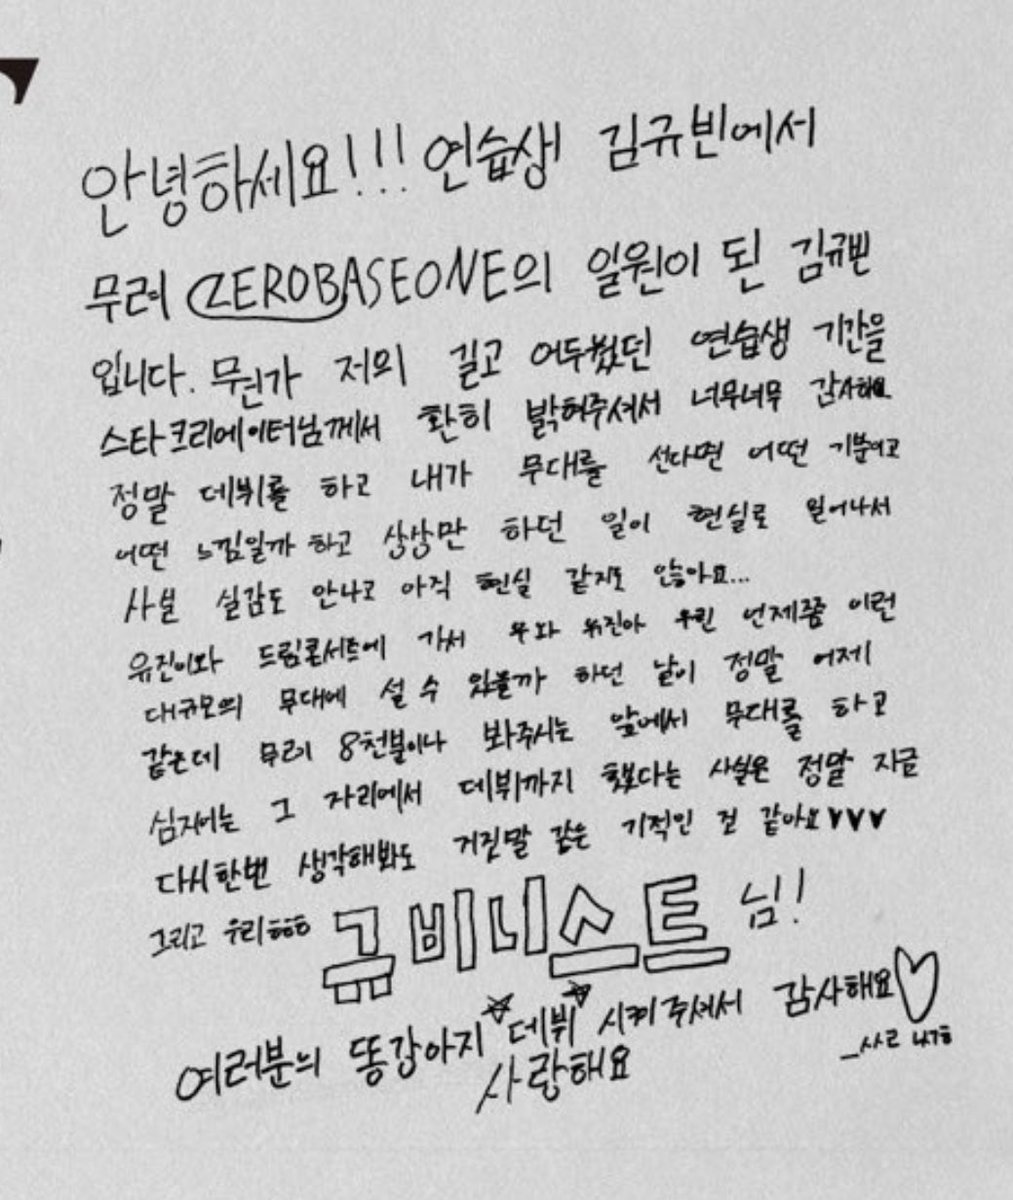 안녕하세요!!! 연습생 김규빈에서
무려 ZEROBASEONE의 일원이 된 김규빈
입니다. 뭔가 저의 길고 어두웠던 연습생 기간을
스타크리에이터님께서 환히 밝혀주셔서 너무너무 감사해요
정말 데뷔를 하고 내가 무대를 선다면 어떤 기분이고
어떤 느낌일까 하고 상상만 하던 일이 현실로 일어나서
사실 실감도 안나고 아직 현실 같지도 않아요...
유진이와 드림콘서트에 가서 우와 유진아 우린 언제쯤 이런
대규모의 무대에 설 수 있을까 하던 날이 정말 어제
같은데 무려 8천분이나 봐주시는 앞에서 무대를 하고
심지어는 그 자리에서 데뷔까지 했다는 사실은 정말 지금
다시한번 생각해봐도 거짓말 같은 기적인 것 같아요♥♥♥
그리고 우리ㅎㅎㅎ 규비니스트 님!
여러분의 똥강아지 ☆데뷔☆ 시켜주셔서 감사해요♡
사랑해요